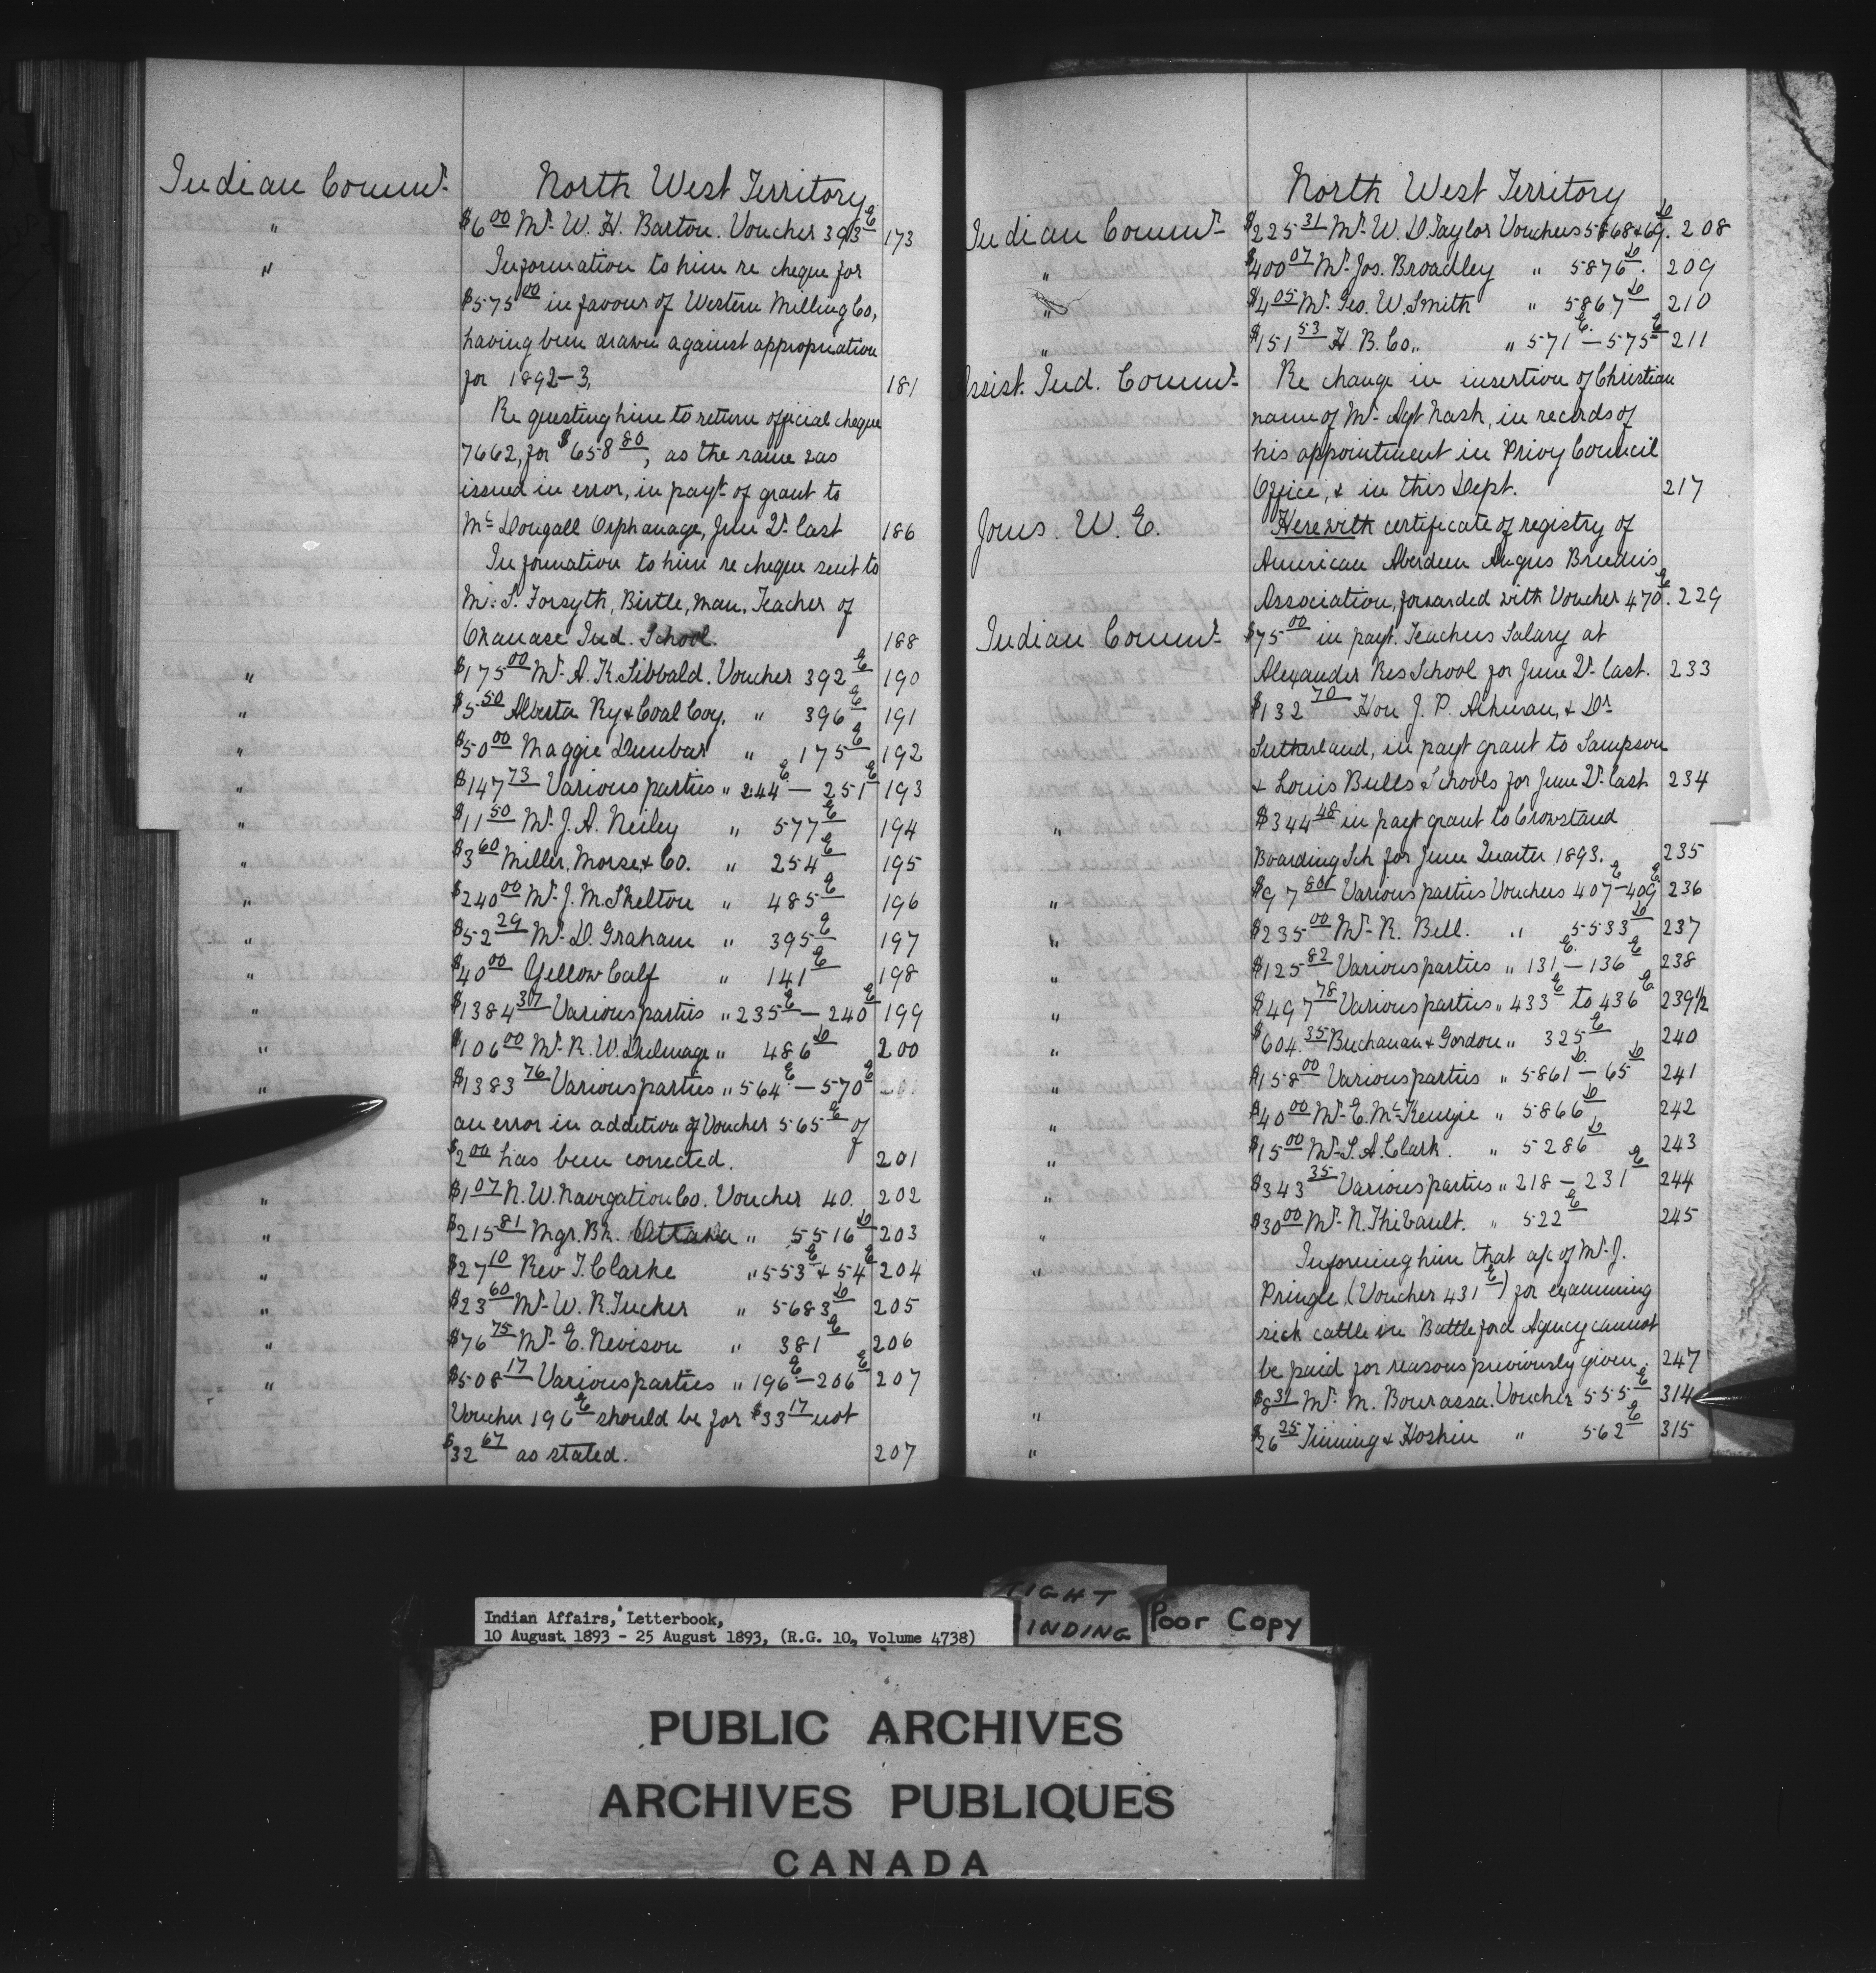 Indian Commr. North West Territory
" $6 00 Mr. W. H. Barton. Voucher 393 E 173
" Information to him re cheque for
$575 00 in favour of Western Milling Co,
having been drawn against appropriation
for 1892-3, 181
Requesting him to return official cheque
7662, for $658 80, as the same was
issued in error, in payt. of grant to
Mc Dougall Orphanage, June Qr. last 186
Information to him re cheque sent to
Mr. S. Forsyth, Birtle, Man. Teacher of
Okanase Ind. School. 188
" $175 00 Mr. A. K. Sibbald. Voucher 392 E 190
" $5 50 Alberta Ry & Coal Coy. " 396 E 191
" $50 00 Maggie Dunbar " 175 E 192
" $147 73 Various parties " 244 E — 251 E 193
" $11 50 Mr. J. A. Neiley " 577 E 194
" $3 60 Miller, Morse, & Co. " 254 E 195
" $240 00 Mr. J. M. Skelton " 485 E 196
" $52 29 Mr. D. Graham " 395 E 197
" $40 00 Yellow Calf " 141 E 198
" $1384 37 Various parties " 235 E — 240 E 199
" $106 00 Mr. R. W. Dulmage " 486 D 200
" $1383 76 Various parties " 564 E — 570 E 201
an error in addition of Voucher 565 E of
$2 00 has been corrected. 201
" $1 07 N. W. Navigation Co. Voucher 40. 202
" $215 81 Mgr. Bk. Ottawa " 5516 D 203
" $27 10 Rev J. Clarke " 553 E & 54 E 204
" $23 60 Mr. W. R. Tucker " 5683 D 205
" $76 75 Mr. E. Nevison " 381 E 206
" $508 17 Various parties " 196 E — 206 E 207
Voucher 196 E should be for $33 17 not
$32 67 as stated. 207
North West Territory
Indian Commr. $225 31 Mr. W. D. Taylor Vouchers 5868 & 69 D. 208
" $400 07 Mr. Jos. Broadley " 5876 D. 209
" $4 05 Mr. Geo. W. Smith " 5867 D 210
" $151 53 H. B. Co., " 571 E — 575 E 211
Assist. Ind. Commr. Re change in insertion of Christian
name of Mr. Agt Nash, in records of
his appointment in Privy Council
Office, & in this Dept. 217
Jones. W. E. Herewith certificate of registry of
American Aberdeen Angus Breeders
Association, forwarded with Voucher 470 E. 229
Indian Commr. $75 00 in payt. Teachers Salary at
Alexander Res School for June Qr. last. 233
$132 70 Hon J. P. & Dr.
Sutherland, in payt grant to Sampson
& Louis Bulls Schools for June Qr. last 234
" $344 48 in payt grant to Crowstand
Boarding Sch for June Quarter 1893. 235
" $97 80 Various parties Vouchers 407 E — 409 E 236
" $235 00 Mr. R. Bell. " 5533 D 237
" $125 82 Various parties " 131 E — 136 E 238
" $497 78 Various parties " 433 E to 436 E 239 1/2
" $604. 35 Buchanan & Gordon " 325 E 240
" $158 00 Various parties " 5861 D — 65 D 241
" $40 00 Mr. E. McKenzie " 5866 D 242
" $15 00 Mr. S. A. Clark. " 5286 D 243
" $343 35 Various parties " 218 — 231 E 244
" $30 00 Mr. N. Thibault. " 522 E 245
" Informing him that a/c of Mr. J.
Pringle, (Voucher 431 E) for examining
sick cattle in Battleford Agency cannot
be paid for reasons previously given. 247
" $8 31 Mr. M. Bourassa. Voucher 555 E 314
" $26 25 Tinning & Hoskin " 562 E 315
TIGHT
BINDING
Poor Copy
Indian Affairs, Letterbook,
10 August 1893 - 25 August 1893, (R.G. 10, Volume 4738)
PUBLIC ARCHIVES
ARCHIVES PUBLIQUES
CANADA